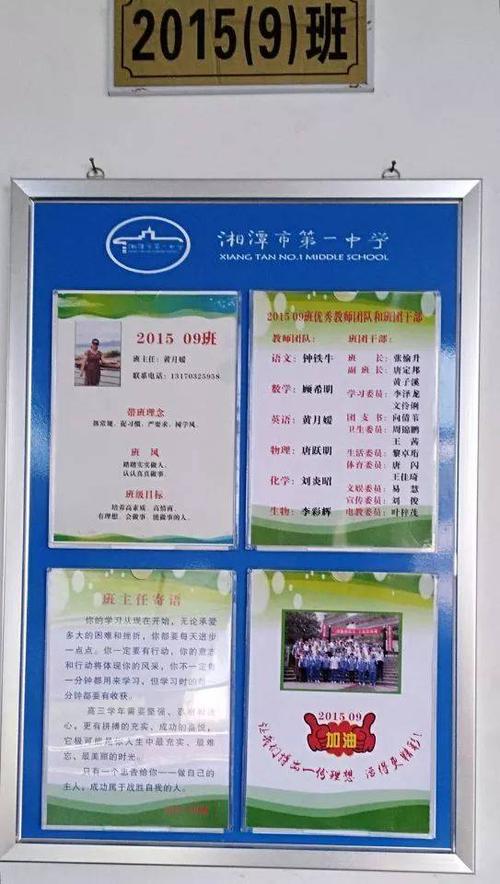 2015(9)班
湘潭市第一中学
湘潭市第一中学
XIANG TAN NO.1 MIDDLE SCHOOL
2015 09班
班主任：黄月媛
联系电话：13170325938
带班理念
抓常规、促习惯、严要求、树学风
班 风
踏踏实实做人、
认认真真做事、
班级目标
培养高素质、高情商、
有理想、会做事、能做事的人。
2015 09班优秀教师团队和班团干部
教师团队： 班团干部：
语文：钟铁牛 班 长：张愉升
副 班 长：唐定邦
黄子溪
数学：顾希明 学习委员：李泽龙
文伶俐
英语：黄月媛 团 支 书：向倩苇
卫生委员：周锦鹏
王 茜
物理：唐跃明 生活委员：黎卓珩
体育委员：唐 闪
王佳琦
化学：刘炎昭 文娱委员：易 慧
宣传委员：刘 俊
生物：李彩辉 电教委员：叶梓茂
班主任寄语
你的学习从现在开始，无论承爱
多大的困难和挫折，你都要每天进步
一点点。你一定要有行动，你的意志
和行动将体现你的风采，你不一定每
一分钟都用来学习，但学习时的每一
分钟都要有收获。
高三学年需要坚强、忍耐和
心，更有拼搏的充实、成功的喜悦，
它极可能是你人生中最充实、最难
忘、最美丽的时光。
只有一个忠告给你——做自己的
主人，成功属于战胜自我的人。
2015 09
加油
让我们博出一份理想 活得更精彩！